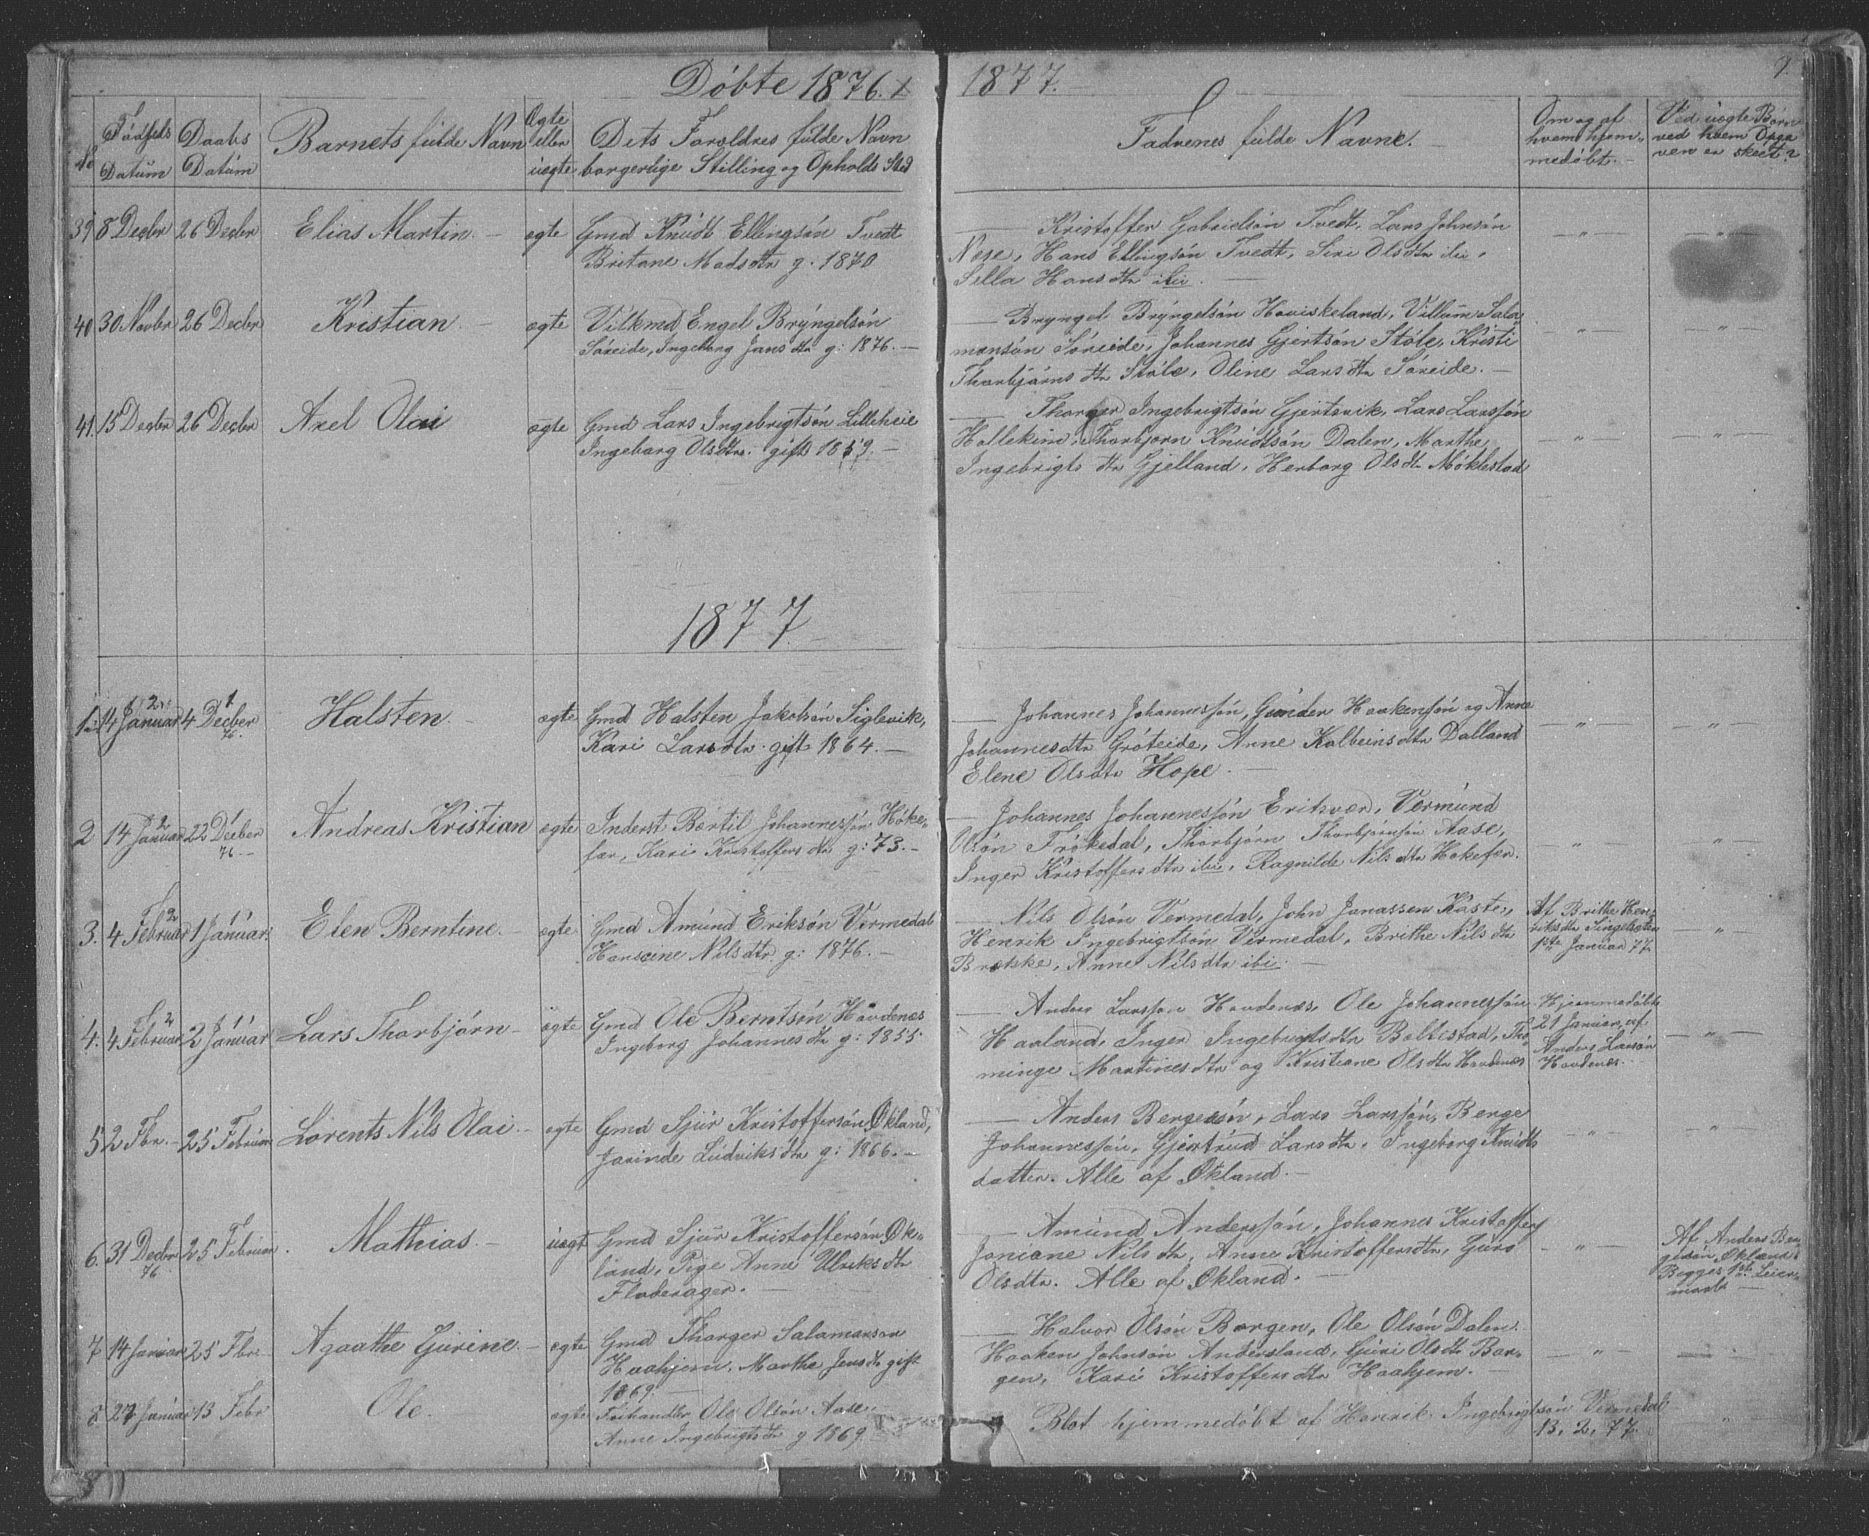 Döbte 1876.
1877.
9
No
Födsels Datum
Daabs Datum
Barnets fulde Navn
Ægte eller uægte
Dets Foræeldres fulde Navn
borgerlige Stilling og Opholds Sted
Fadrenes fulde Navne.
Om og af hvem hjem-
medöbt.
Ved uægte Börn
ved hvem Opga
ven er skeet?
39 8 Decbr 26 Decbr Elias Martin. ægte Gmd Knudt Ellingsön Tvedt
Britane Madsdtr g. 1870
Kristoffer Gabrielsön Tvedt, Lars Johnsön
Næse, Hans Ellingsön Tvedt, Siri Olsdtr ibi,
Sella Hansdtr ibi.
40 30 Novbr 26 Decbr Kristian. ægte Vilkmd Engel Brÿngelsön
Söreide, Ingeborg Jansdtr g: 1876.
Bryngel Brÿngelsön Haviskeland, Villum Sala
monsön Söreide, Johannes Gjertsön Stöle, Kristi
Thorbjörns dtr Stöle, Oline Lars dtr Söreide.
41. 15 Decbr 26 Decbr Axel Olai ægte Gmd Lars Ingebrigtsön Lilleheie
Ingeborg Olsdtr. gift 1859.
Thorger Ingebrigtsön Gjertsvik, Lars Larssön
Hollekim, Thorbjorn Knudtsön Dalen, Marthe
Ingebrigts dtr Gjelland, Herborg Olsdtr Möklestad
1877
1. 14 Januar 4 Decber 76. Halsten ægte Gmd Halsten Jakobsön Siglevik,
Kari Larsdtr. gift 1864.
Johannes Johannessön, Gunder Haakensön og Anne
Johannesdtr Gröteide, Anne Kolbeinsdtr Dalland
Elene Olsdtr Hope.
2 14 Januar 22 Decber 76. Andreas Kristian ægte Inderst Bærtil Johannessön Höke-
før, Kari Kristoffers dtr g: 73.
Johannes Johannessön Eritsvær, Vermund
Olsön Frökedal, Thorbjörn Thorbjörnsön Aase,
Inger Kristoffersdtr ibi, Ragnilde Nilsdtr Hokefer.
3. 4 Februar 1 Januar. Elen Berntine. ægte Gmd Amund Eriksön Vermedal
Hanseine Nilsdtr g: 1876.
Nils Olsön Vermedal, John Janassen Kaste,
Henrik Ingebrigtsön Vermedal, Brithe Nilsdtr
Brekke, Anne Nilsdtr ibi.
Af Brithe Hen-
riksdtr
1ste Januar 77.
4. 4 Februar 2 Januar Lars Thorbjörn ægte Gmd Ole Berntsön Havdenæs
Ingeborg Johannesdtr g: 1855.
Anders Larssön Havdenæs, Ole Johannessön
Haaland, Inger Ingebrigtsdtr Boltestad, Tho
minge Martinesdtr og Kristiane Olsdtr Havdenæs
Hjemmedöbt
21 Januar, af
Anders Larsön
Havdenæs.
5 2 Fbr. 25 Februar Lorents Nils Olai. ægte Gmd Sjur Kristoffersön Økland,
Jorinde Ludviksdtr g: 1866.
Anders Bergesön, Lars Larssön, Benge
Johannessön, Gjertrud Larsdtr, Ingeborg Knudts
datter. Alle af Økland.
6. 31 Decbr 76 25 Februar. Mathias. uægt Gmd Sjur Kristoffersön Øk-
land, Pige Anne Ulriksdtr
Floterager.
Amund Anderssön, Johannes Kristoffers
Janiane Nilsdtr, Anne Kristoffersdtr, Guro
Olsdtr. Alle af Økland.
Af Anders Ben-
gtsön, Økland.
Begges 1ste Leier-
maal.
7 14 Januar 25 Fbr. Agaathe Gurine. ægte Gmd Thorger Salamonson
Haahjem. Marthe Jensdtr gift
1869.
Halvor Olsön Borgen, Ole Olsön Dalen.
Haaken Johnsön Andersland, Guri Olsdtr Bor-
gen, Kari Kristoffersdtr Haahjem.
8 27 Januar 13 Febr Ole. ægte Forhandler Ole Olsön Aase.
Anne Ingebrigtsdtr g 1869
Blot hjemmedöbt af Henrik Ingebrigtsön Vermedal
13. 2. 77.